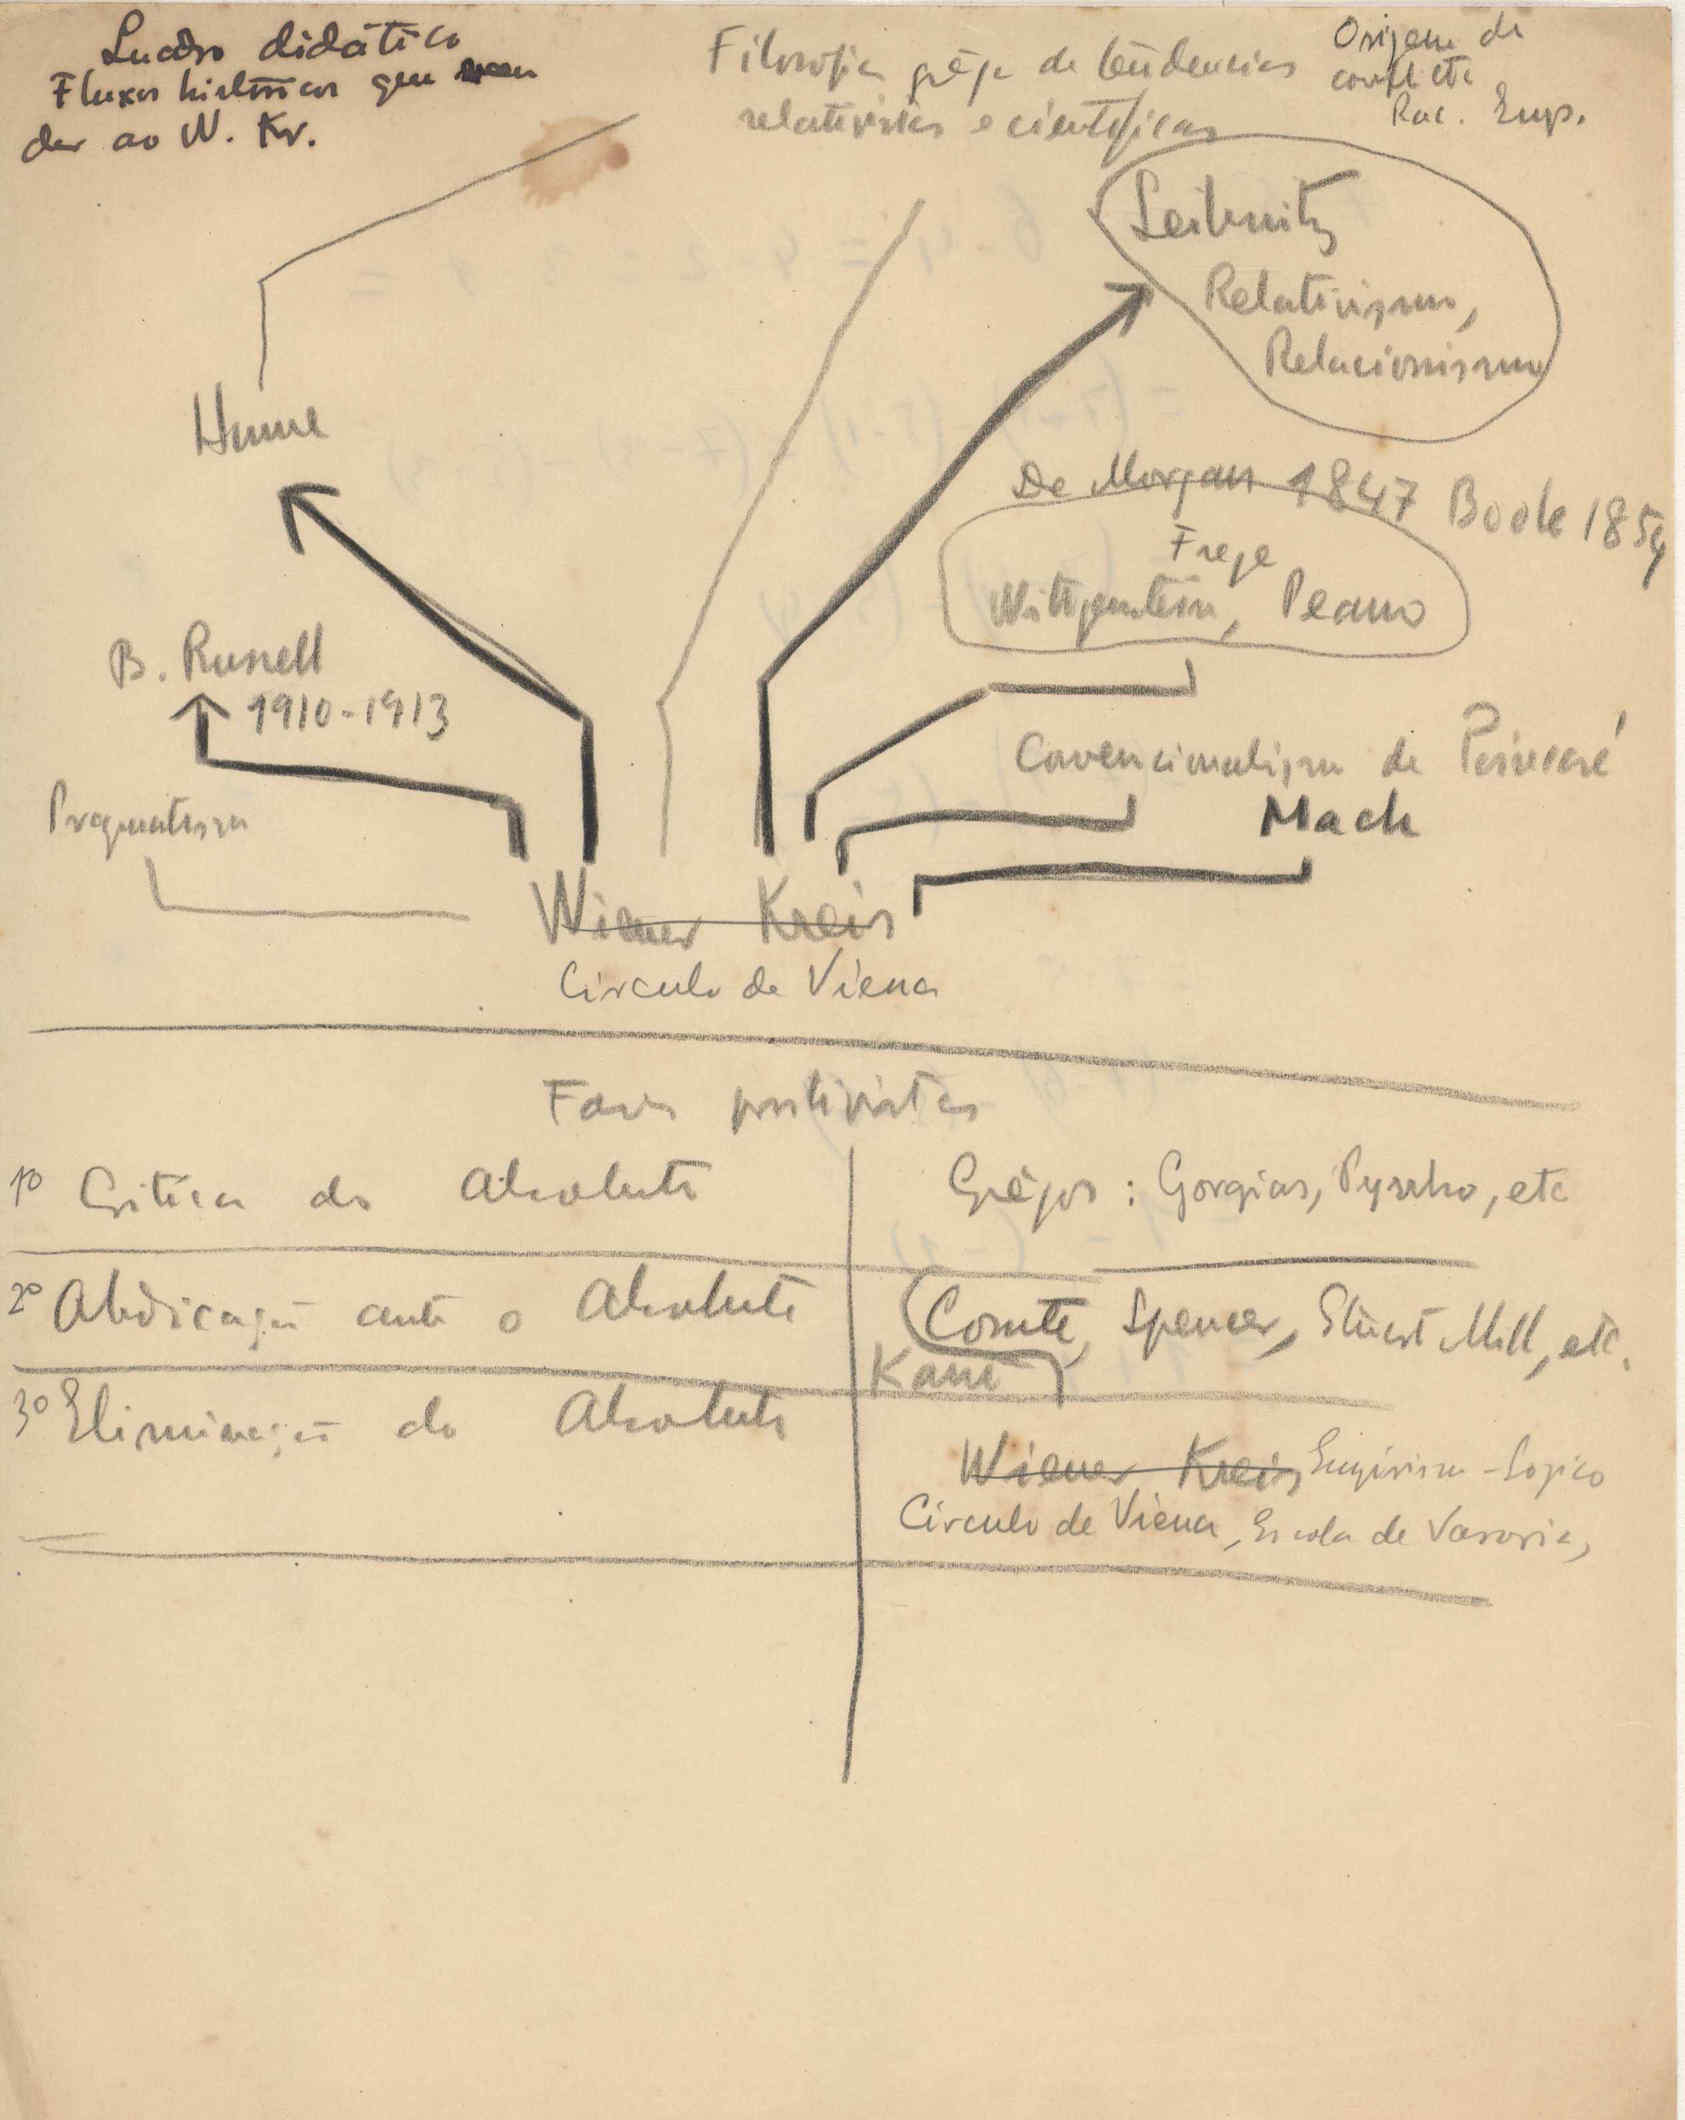 Quadro didático
Fluxos históricos que vem
dar ao W. Kr.
Filosofia grêga de tendencias
relativistas e cientificas
Origem do
conflito
Rac. Emp.
Leibnitz
Relativismo,
Relacionismo
Hume
De Morgan 1847 Boole 1854
Frege
Wittgenstein, Peano
B. Russell
1910-1913
Convencionalismo de Poincaré
Mach
Pragmatismo
Wiener Kreis
Circulo de Viena
Fases positivistas
1º Critica do Absoluto
Grêgos: Gorgias, Pyrrho, etc
2º Abdicação ante o Absoluto
Comte, Spencer, Stuart Mill, etc.
Kant
3º Eliminação do Absoluto
Wiener Kreis Empirismo-Logico
Circulo de Viena, Escola de Varsovia,